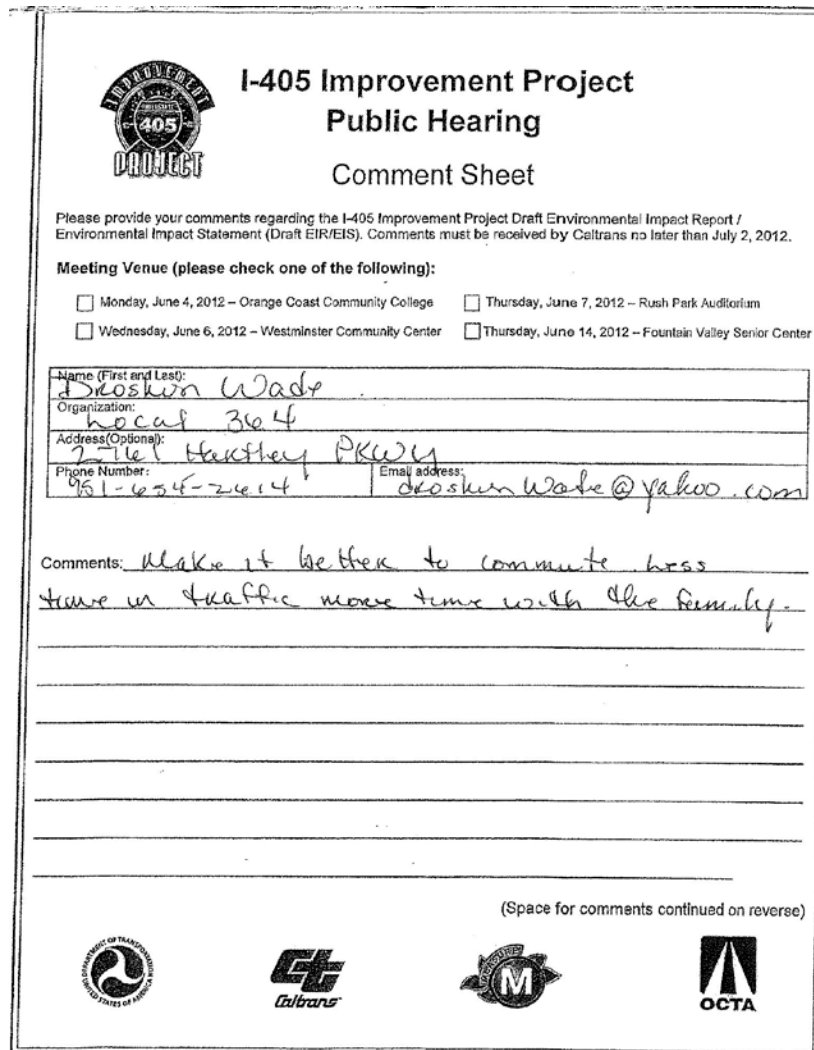 IMPROVEMENT
INTERSTATE
405
PROJECT
I-405 Improvement Project
Public Hearing
Comment Sheet
Please provide your comments regarding the I-405 Improvement Project Draft Environmental Impact Report /
Environmental Impact Statement (Draft EIR/EIS). Comments must be received by Caltrans no later than July 2, 2012.
Meeting Venue (please check one of the following):
Monday, June 4, 2012 – Orange Coast Community College
Thursday, June 7, 2012 – Rush Park Auditorium
Wednesday, June 6, 2012 – Westminster Community Center
Thursday, June 14, 2012 – Fountain Valley Senior Center
Name (First and Last):
Wade
Organization:
Local 364
Address(Optional):
PKWY
Phone Number:
951-654-2614
Email address:
Wade@yahoo.com
Comments: Make it better to commute less
time in traffic more time with the family.
(Space for comments continued on reverse)
DEPARTMENT OF TRANSPORTATION
UNITED STATES OF AMERICA
Caltrans
MEASURE
M
OCTA